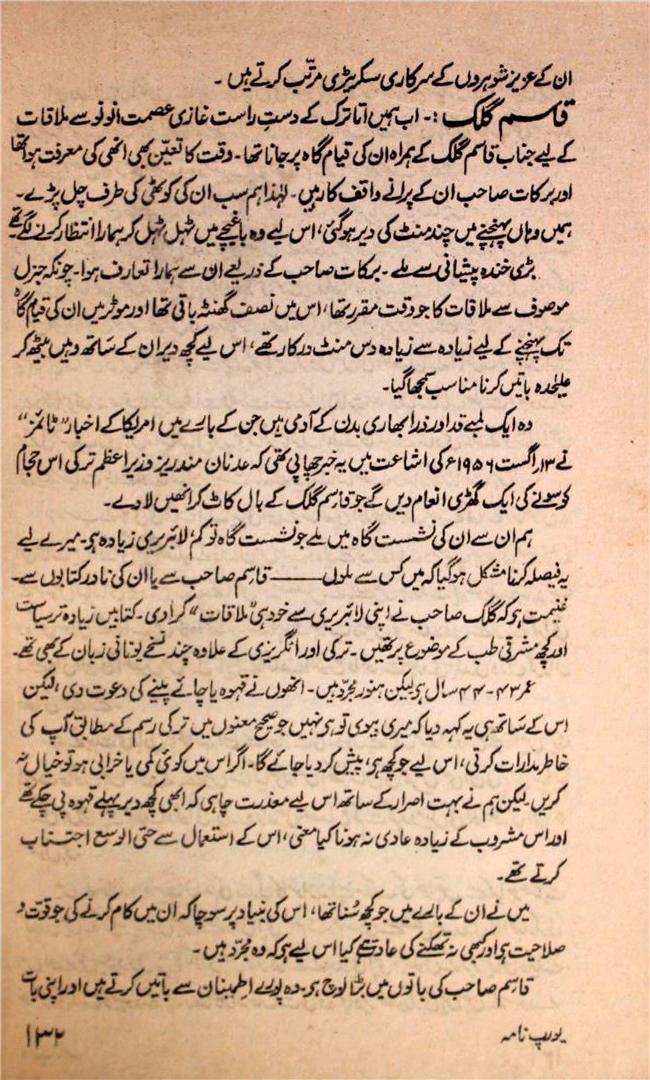 ان کے عزیز شوہروں کے سرکاری سکریٹری مرتّب کرتے ہیں ۔
قاسم گلک :۔ اب ہمیں اتاترک کے دستِ راست غازی عصمت انونو سے ملاقات
کے لیے جناب قاسم گلک کے ہمراہ ان کی قیام گاہ پر جانا تھا۔ وقت کا تعیّن بھی انھی کی معرفت ہوا تھا
اور برکات صاحب ان کے پرانے واقف کار ہیں۔ لہٰذا ہم سب ان کی کوٹھی کی طرف چل پڑے۔
ہمیں وہاں پہنچنے میں چند منٹ کی دیر ہوگئی، اس لیے وہ باغیچے میں ٹہل ٹہل کر ہمارا انتظار کرنے لگے تھے۔
بڑی خندہ پیشانی سے ملے۔ برکات صاحب کے ذریعے ان سے ہمارا تعارف ہوا۔ چونکہ جنرل
موصوف سے ملاقات کا جو وقت مقرر تھا، اس میں نصف گھنٹہ باقی تھا اور موٹر میں ان کی قیام گاہ
تک پہنچنے کے لیے زیادہ سے زیادہ دس منٹ درکار تھے، اس لیے کچھ دیر ان کے ساتھ وہیں بیٹھ کر
علیٰحدہ باتیں کرنا مناسب سمجھا گیا۔
وہ ایک لمبے قد اور ذرا بھاری بدن کے آدمی ہیں جن کے بارے میں امریکا کے اخبار ”ٹائمز“
نے ۱۳ اگست ۱۹۵۶ء کی اشاعت میں یہ خبر چھاپی تھی کہ عدنان مندریز وزیراعظم ترکی اس حجام
کو سونے کی ایک گھڑی انعام دیں گے جو قاسم گلک کے بال کاٹ کر انھیں لا دے۔
ہم ان سے ان کی نشست گاہ میں ملے جو نشست گاہ تو کم لائبریری زیادہ ہے۔ میرے لیے
یہ فیصلہ کرنا مشکل ہوگیا کہ میں کس سے ملوں —— قاسم صاحب سے یا ان کی نادر کتابوں سے۔
غنیمت ہے کہ گلک صاحب نے اپنی لائبریری سے خود ہی ”ملاقات“ کرا دی۔ کتابیں زیادہ تر سیاست
اور کچھ مشرقی طب کے موضوع پر تھیں۔ ترکی اور انگریزی کے علاوہ چند نسخے یونانی زبان کے بھی تھے۔
عمر ۴۳-۴۴ سال ہے لیکن ہنوز مجرّد ہیں۔ انھوں نے قہوہ یا چائے پینے کی دعوت دی، لیکن
اس کے ساتھ ہی یہ کہہ دیا کہ میری بیوی تو ہے نہیں جو صحیح معنوں میں ترکی رسم کے مطابق آپ کی
خاطر مدارات کرتی، اس لیے جو کچھ ہے، پیش کر دیا جائے گا۔ اگر اس میں کوئی کمی یا خرابی ہو تو خیال نہ
کریں لیکن ہم نے بہت اصرار کے ساتھ اس لیے معذرت چاہی کہ ابھی کچھ دیر پہلے قہوہ پی چکے تھے
اور اس مشروب کے زیادہ عادی نہ ہونا کیا معنی، اس کے استعمال سے حتی الوسع اجتناب
کرتے تھے۔
میں نے ان کے بارے میں جو کچھ سُنا تھا، اس کی بنیاد پر سوچا کہ ان میں کام کرنے کی جو قوّت و
صلاحیت ہے اور کبھی نہ تھکنے کی عادت ہے کیا اس لیے ہے کہ وہ مجرّد ہیں۔
قاسم صاحب کی باتوں میں بڑا لوچ ہے۔ وہ پورے اطمینان سے باتیں کرتے ہیں اور اپنی بات
یورپ نامہ
۱۳۲